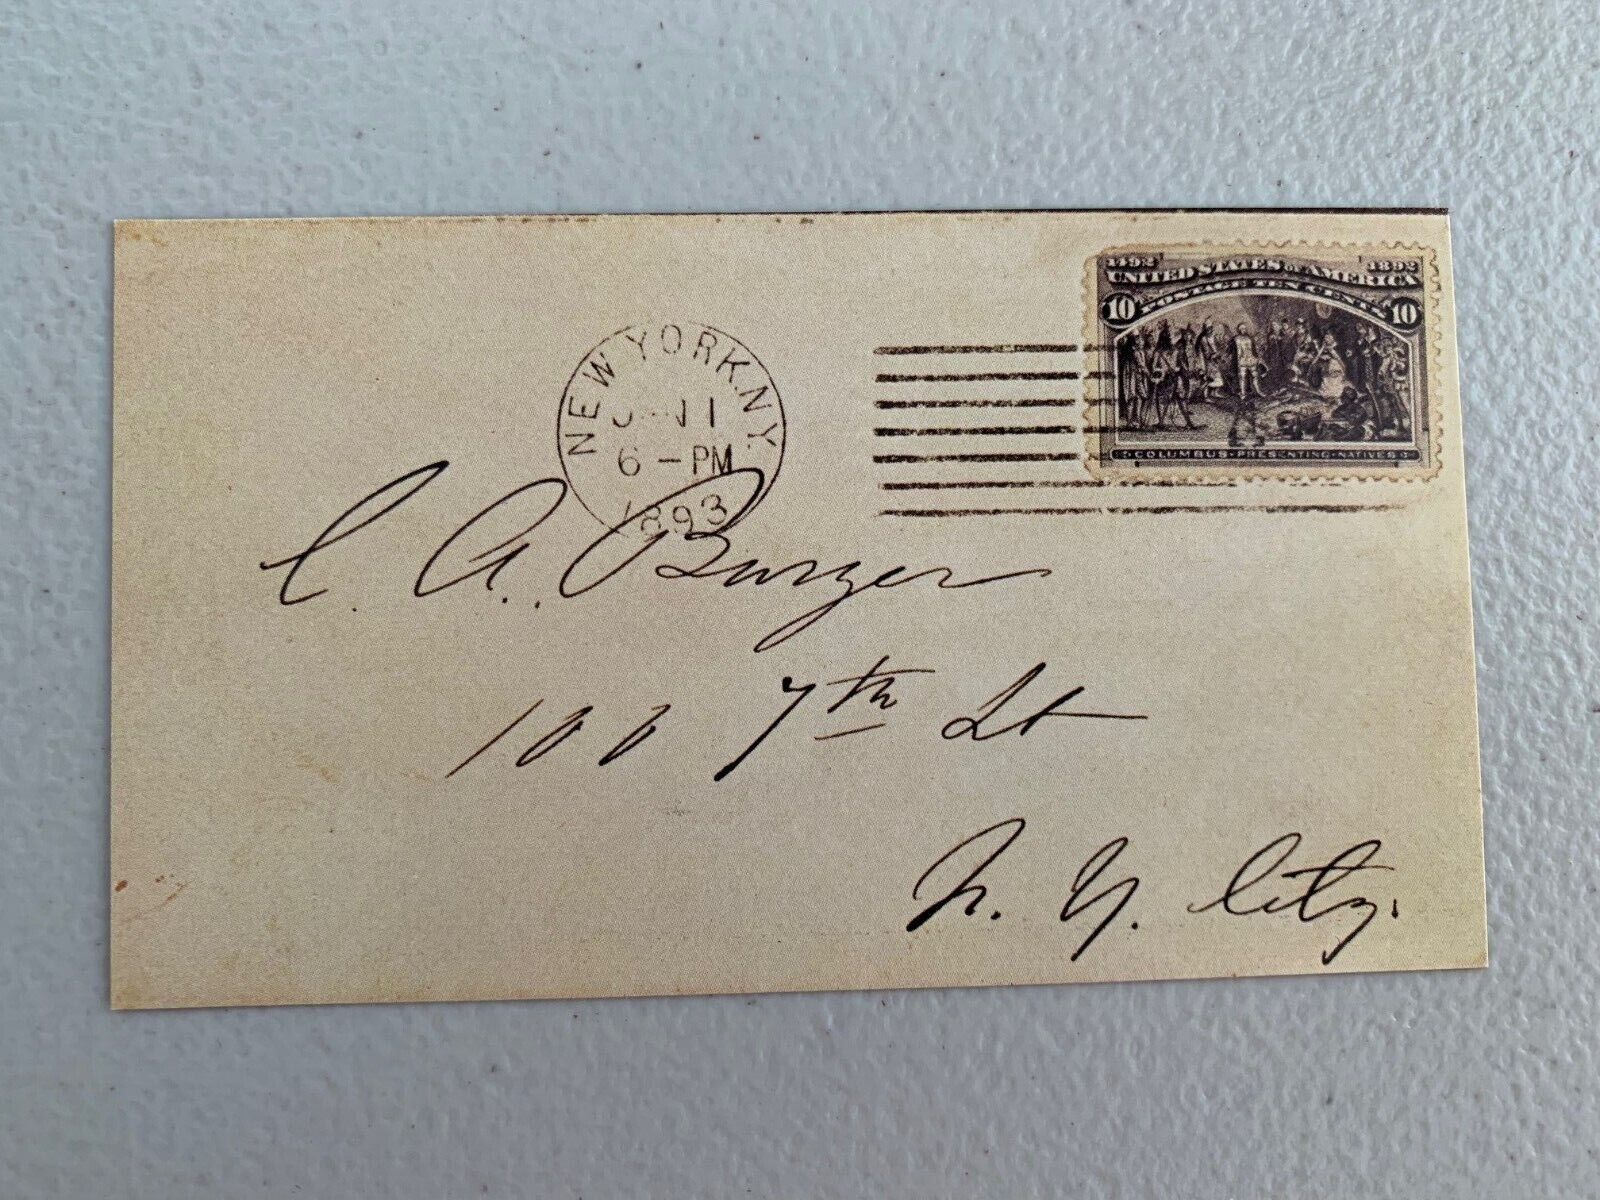 1492 1892
UNITED STATES OF AMERICA
10 POSTAGE TEN CENTS 10
COLUMBUS PRESENTING NATIVES
NEW YORK.N.Y.
6-PM
1893
C. A. Burger
100 7th St
N. Y. City.